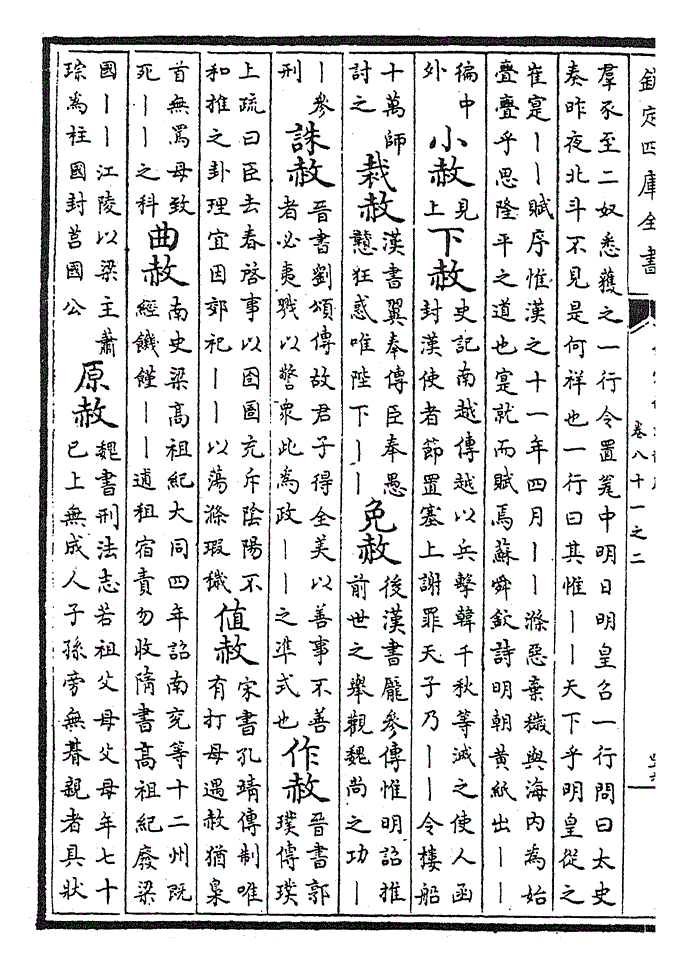 欽定四庫全書
卷八十一之二
羣豕至二奴悉獲之一行令置甕中明日明皇召一行問曰太史
奏昨夜北斗不見是何祥也一行曰其惟丨丨天下乎明皇從之
崔寔丨丨賦序惟漢之十一年四月丨丨滌惡棄穢與海內為始
亹亹乎思隆平之道也寔就而賦焉蘇舜欽詩明朝黃紙出丨丨
徧中
外
小赦
見
上
下赦
史記南越傳越以兵擊韓千秋等滅之使人函
封漢使者節置塞上謝罪天子乃丨丨令樓船
十萬師
討之
裁赦
漢書翼奉傳臣奉愚
戇狂惑唯陛下丨丨
免赦
後漢書龎參傳惟明詔推
前世之舉觀魏尚之功丨
丨參
刑
誅赦
晉書劉頌傳故君子得全美以善事不善
者必夷戮以警衆此為政丨丨之準式也
作赦
晉書郭
璞傳璞
上疏曰臣去春啓事以囹圄充斥陰陽不
和推之卦理宜因郊祀丨丨以蕩滌瑕穢
値赦
宋書孔靖傳制唯
有打母遇赦猶梟
首無罵母致
死丨丨之科
曲赦
南史梁高祖紀大同四年詔南兗等十二州既
經饑饉丨丨逋租宿責勿收隋書高祖紀廢梁
國丨丨江陵以梁主蕭
琮為柱國封莒國公
原赦
魏書刑法志若祖父母父母年七十
已上無成人子孫旁無朞親者具狀